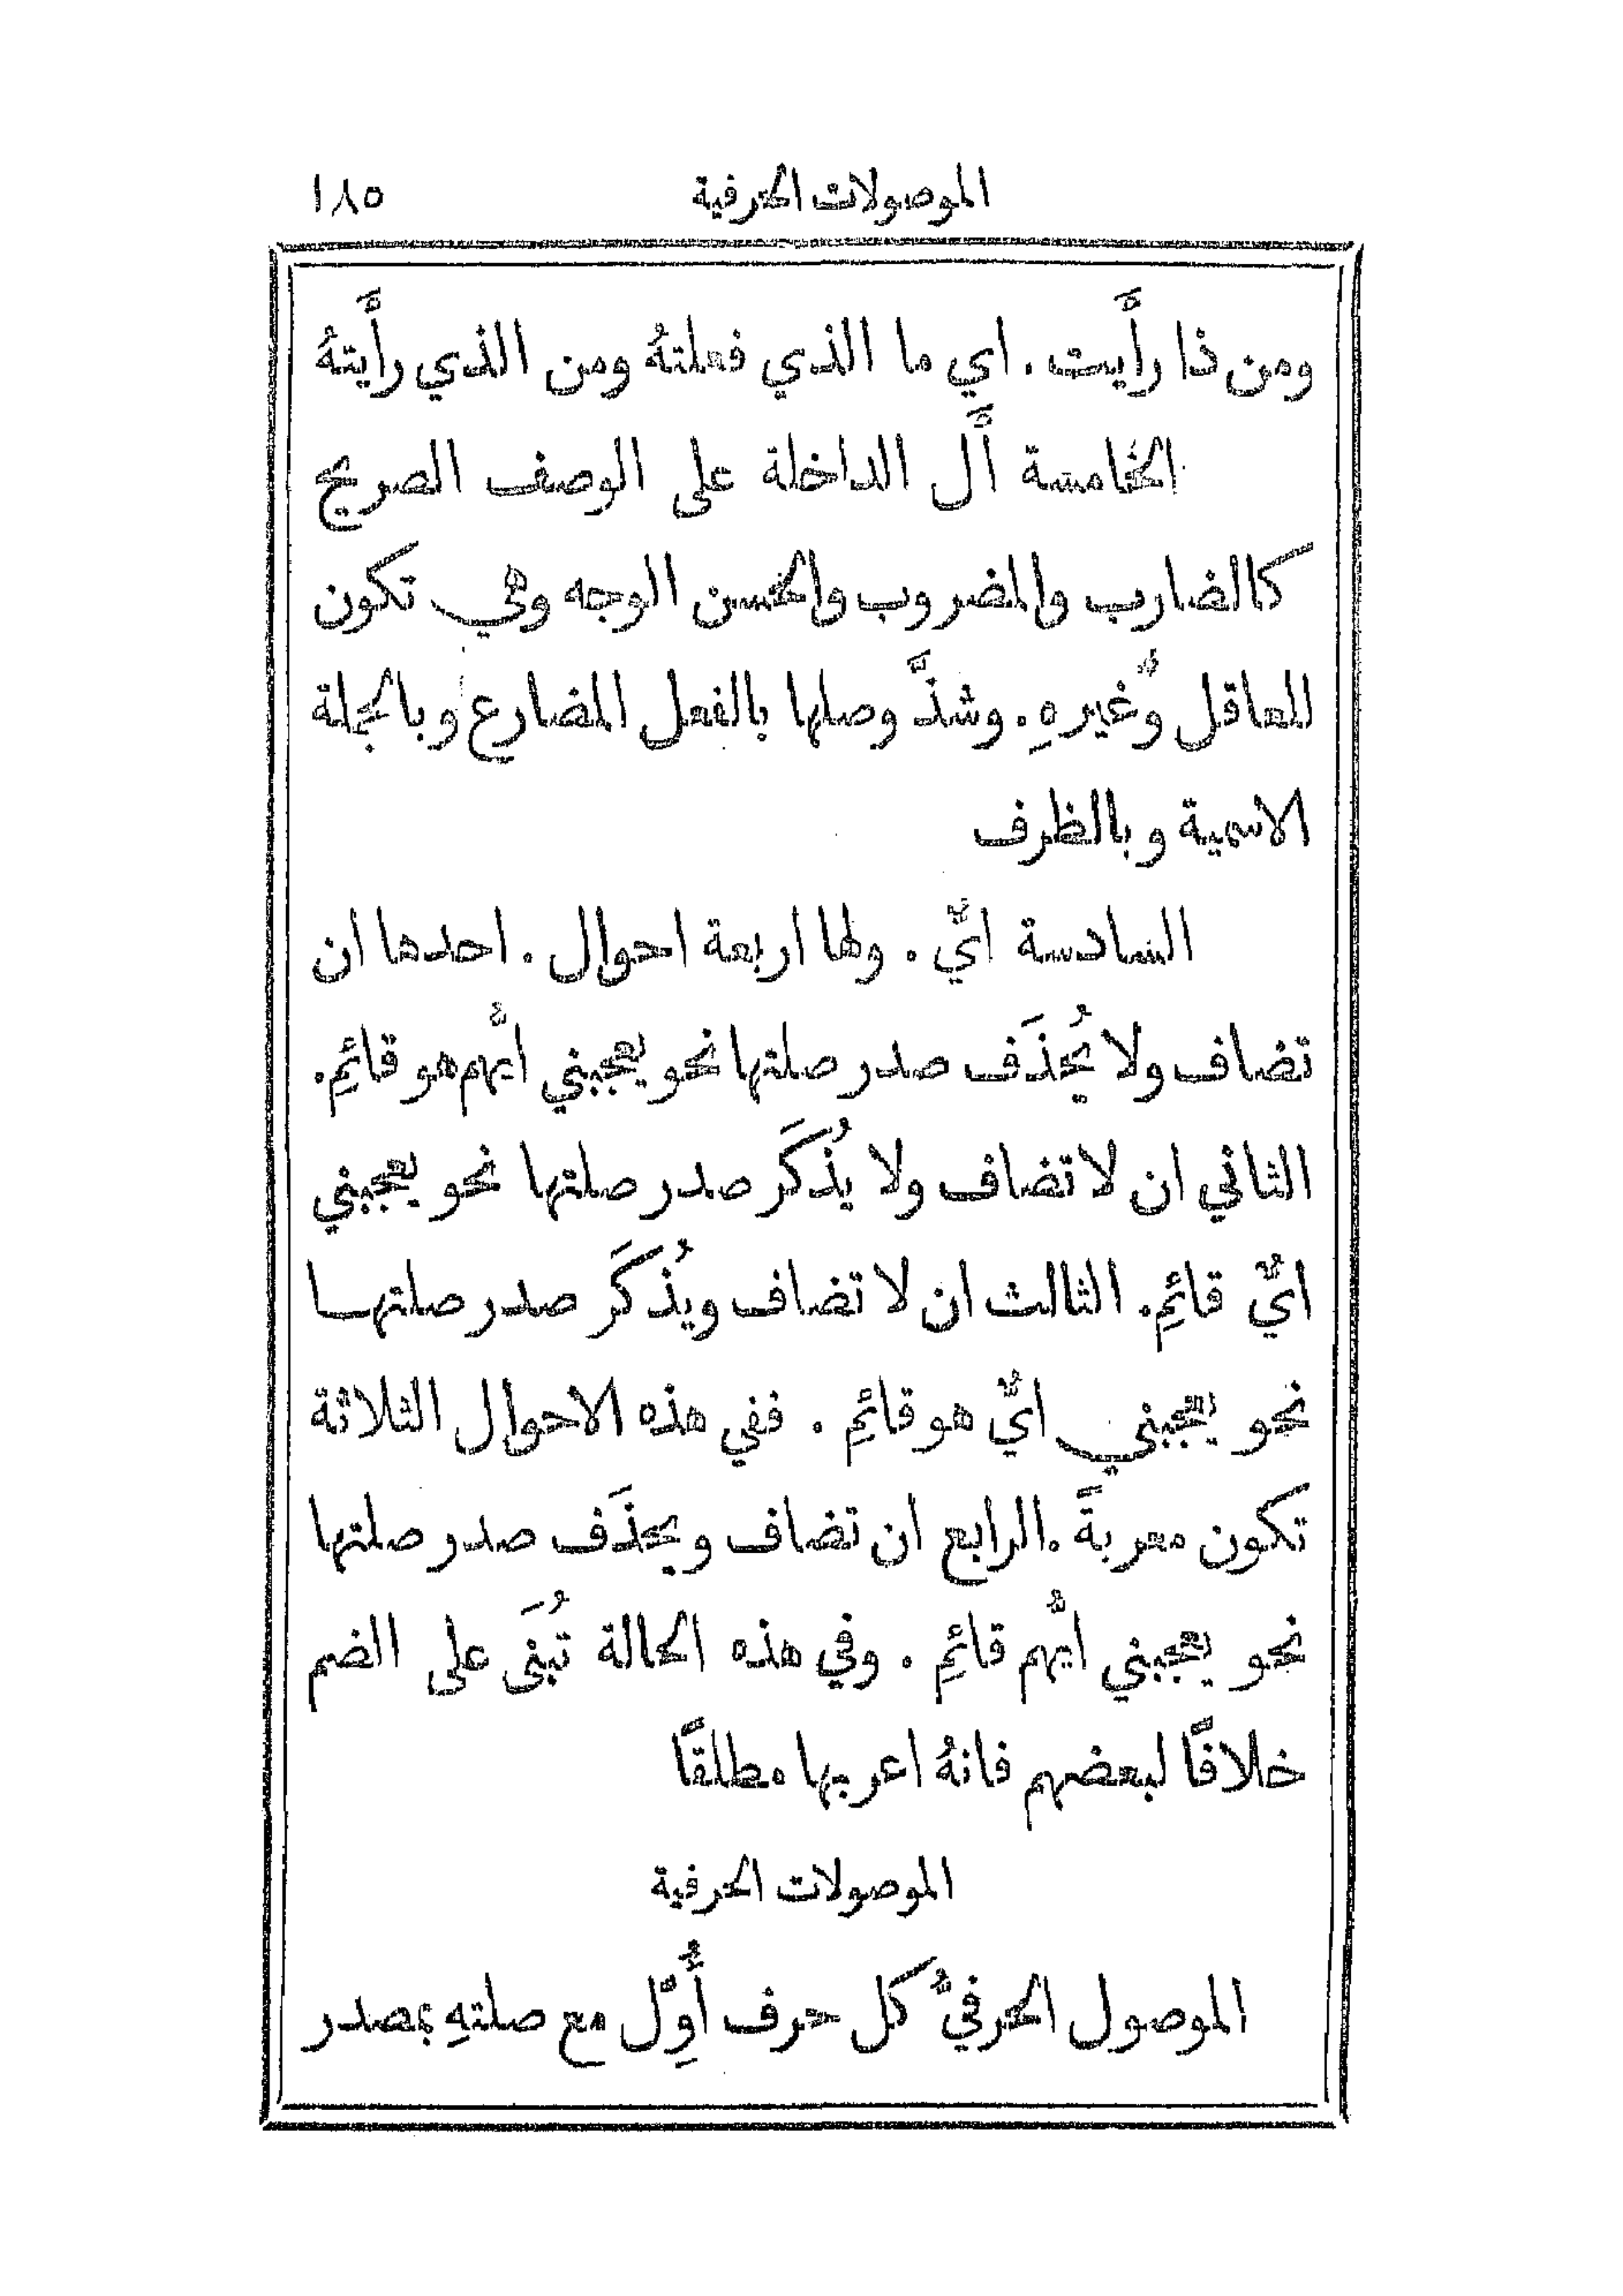 الموصولات الحرفية ١٨٥
ومن ذا رأَيت . اي ما الذي فعلتهُ ومن الذي رأَيتهُ
الخامسة أَل الداخلة على الوصف الصريح
كالضارب والمضروب والحسن الوجه وهي تكون
للعاقل وغيرهِ . وشذَّ وصلها بالفعل المضارع وبالجملة
الاسمية وبالظرف
السادسة ايٌّ . ولها اربعة احوال . احدها ان
تضاف ولا يُحذَف صدر صلتها نحو يعجبني ايُّهم هو قائِم .
الثاني ان لا تضاف ولا يُذكَر صدر صلتها نحو يعجبني
ايٌّ قائِم . الثالث ان لا تضاف ويُذكَر صدر صلتها
نحو يعجبني ايٌّ هو قائِم . ففي هذه الاحوال الثلاثة
تكون معربةً . الرابع ان تضاف ويحذَف صدر صلتها
نحو يعجبني ايُّهم قائِم . وفي هذه الحالة تُبنَى على الضم
خلافًا لبعضهم فانهُ اعربها مطلقًا
الموصولات الحرفية
الموصول الحرفيُّ كل حرف أُوِّل مع صلتهِ بمصدر